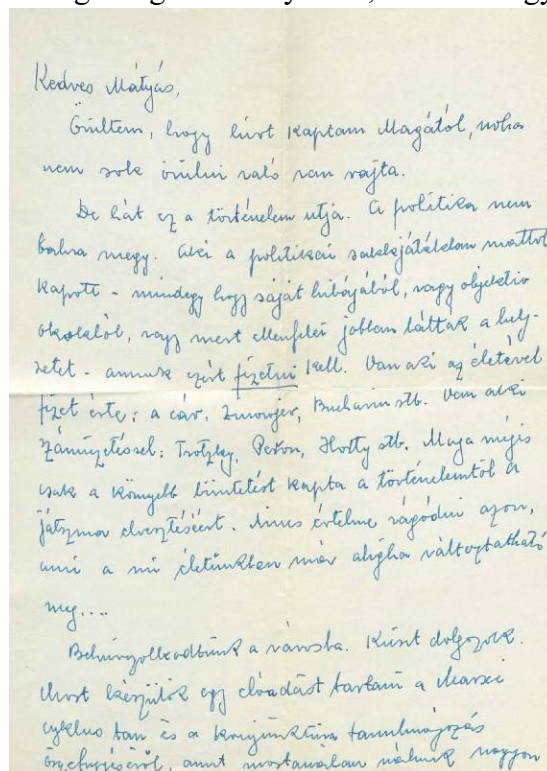 Kedves Mátyás,
Örültem, hogy hírt kaptam Magától, noha
nem sok örülni való van rajta.
De hát ez a történelem utja. A politika nem
babra megy. Aki a politikai sakkjátékban mattot
kapott - mindegy hogy saját hibájából, vagy objektiv
okokból, vagy mert ellenfelei jobban látták a hely-
zetet - annak ezért fizetni kell. Van aki az életével
fizet érte: a cár, Zinovjev, Bucharin stb. Van aki
száműzetéssel: Trotzky, Peron, Horty stb. Maga mégis
csak a könnyebb büntetést kapta a történelemtől a
játszma elvesztéséért. Nincs értelme rágódni azon,
ami a mi életünkben már aligha változtatható
meg....
Behurcolkodtunk a városba. Kicsit dolgozok.
Most készülök egy előadást tartani a Marxi
cyklus tan és a konjunktura tanulmányozás
összefüggéséről, amit mostanában nálunk nagyon